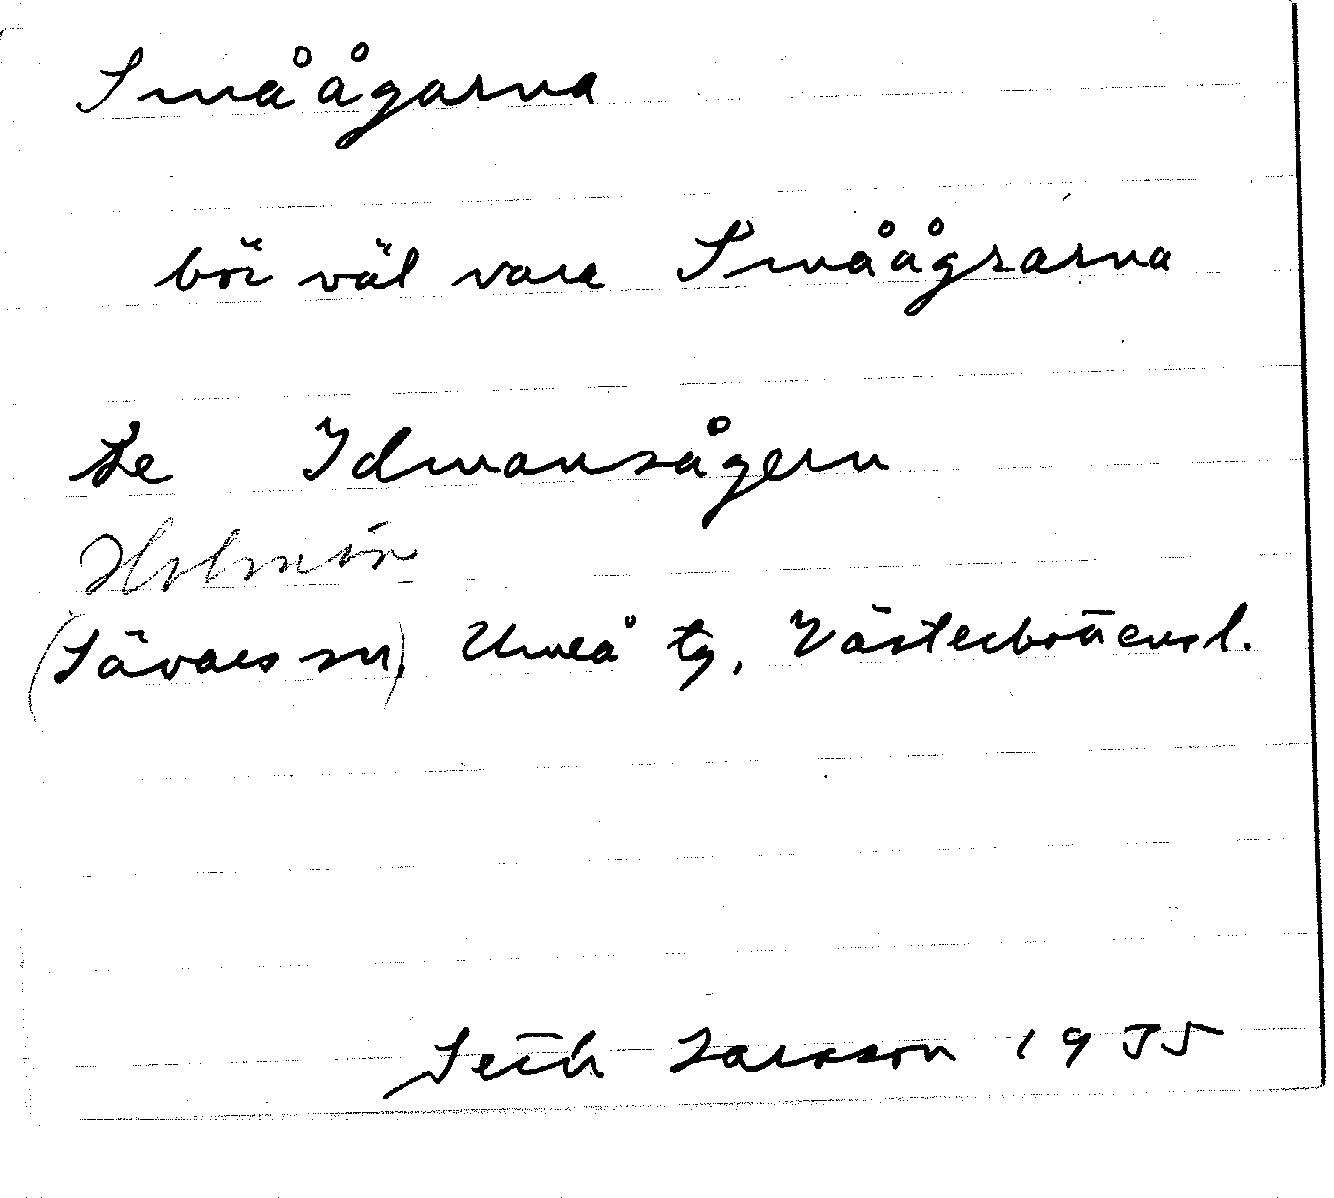 Småågarna
bör väl vara Småågrarna
Se Idmansågern
Holmön
(Sävars sn), Umeå tg, Västerbottensl.
Seth Larsson 1955